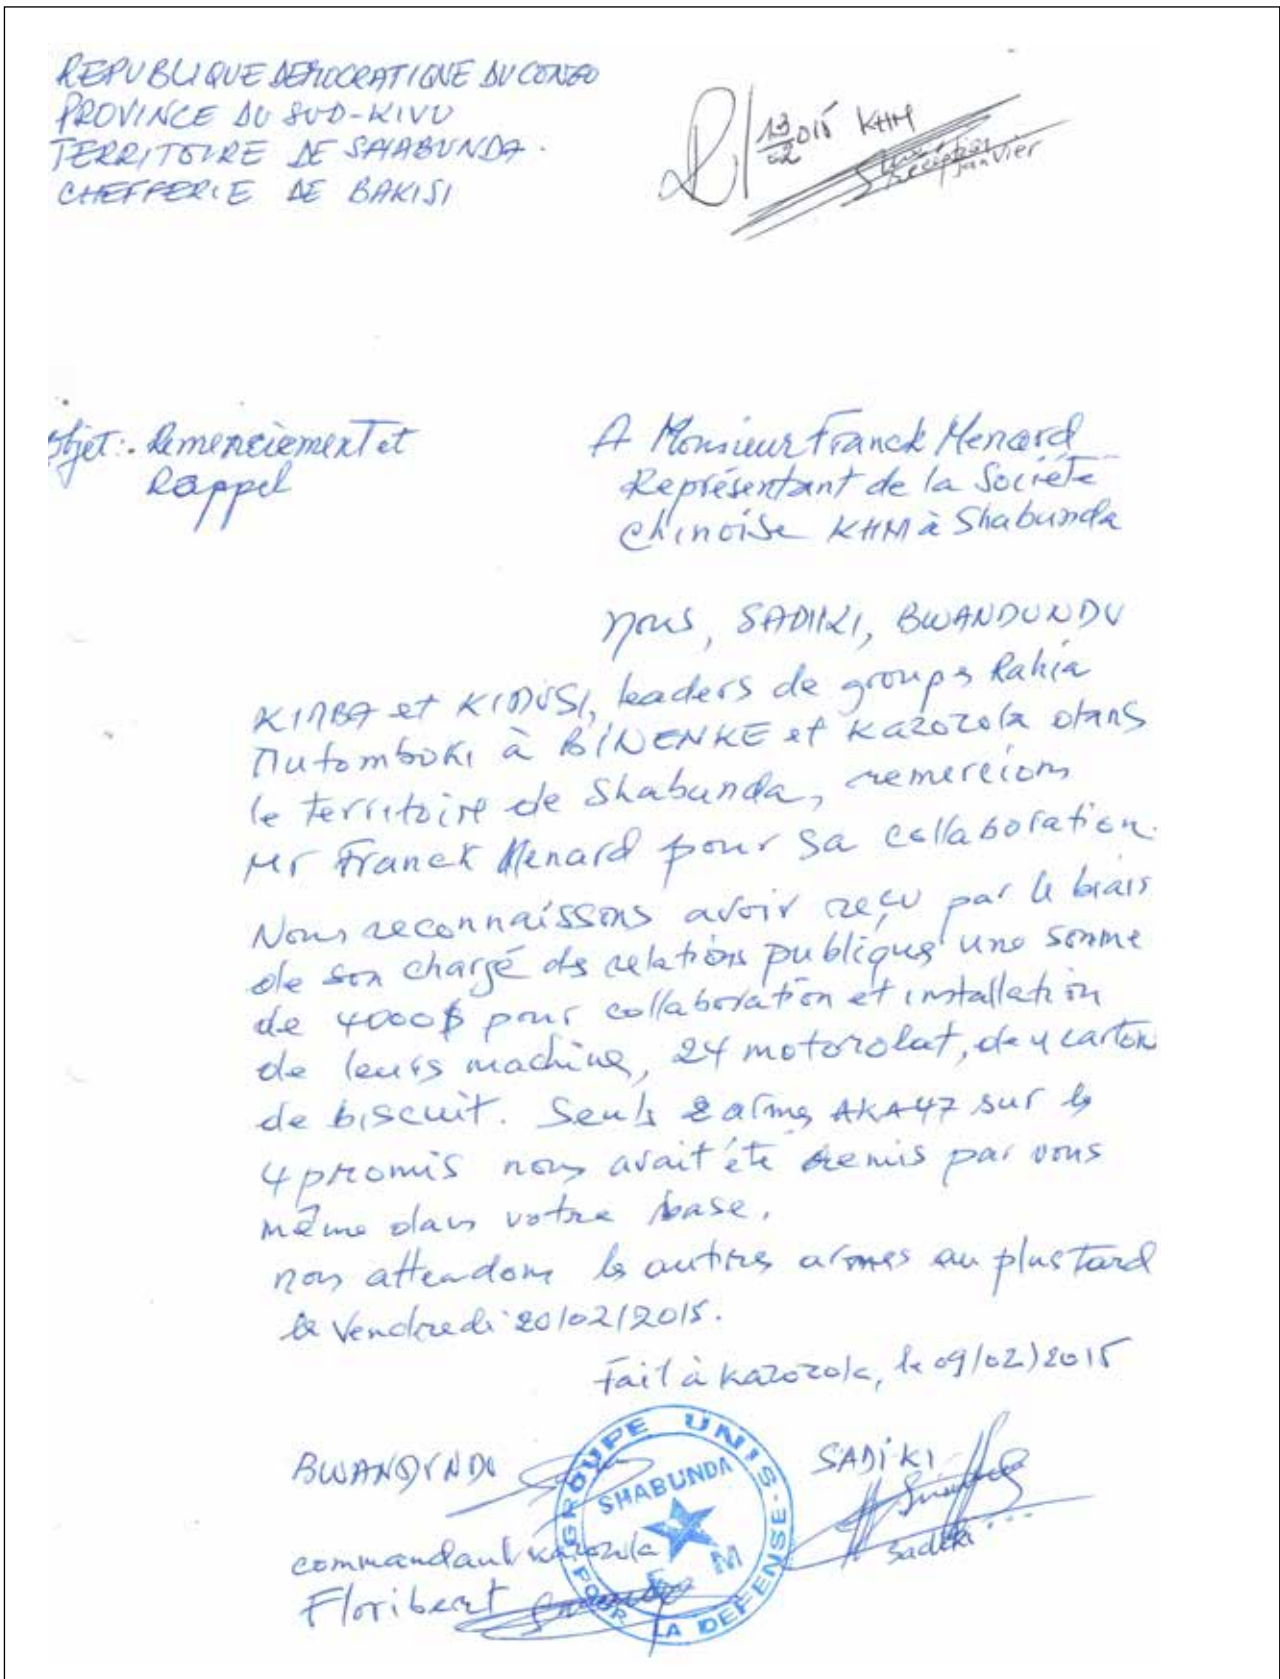 REPUBLIQUE DEMOCRATIQUE DU CONGO
PROVINCE DU SUD-KIVU
TERRITOIRE DE SHABUNDA.
CHEFFERIE DE BAKISI
13/02 015 KHM
Réception
janvier
Objet:. Remerciement et
Rappel
A Monsieur Franck Menard
Représentant de la Société
chinoise KHM à Shabunda
Nous, SADIKI, BWANDUNDU
KIMBA et KIDUSI, leaders de groupes Rahia
Mutomboki à BINENKE et Kazozola dans
le territoire de Shabunda, remercions
Mr Franck Menard pour sa collaboration.
Nous reconnaissons avoir reçu par le biais
de son chargé de relations publiques une somme
de 4000$ pour collaboration et installation
de leurs machine, 24 motorolat, de 4 carton
de biscuit. Seuls 2 armes AKA47 sur les
4 promis nous avait été remis par vous
même dans votre base.
nous attendons les autres armes au plus tard
le Vendredi 20/02/2015.
Fait à Kazozola, le 09/02/2015
BWANDUNDU
SADIKI
Sadiki
commandant Kazozola
Floribert
GROUPE UNIS - POUR LA DEFENSE
SHABUNDA
M